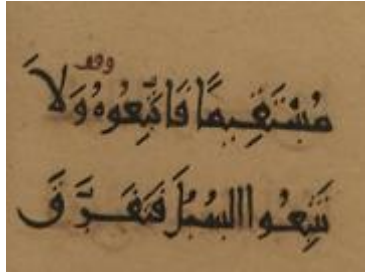 وقف
مُسْتَقِيمًا فَاتَّبِعُوهُ وَلَا
تَتَّبِعُوا السُّبُلَ فَتَفَرَّقَ